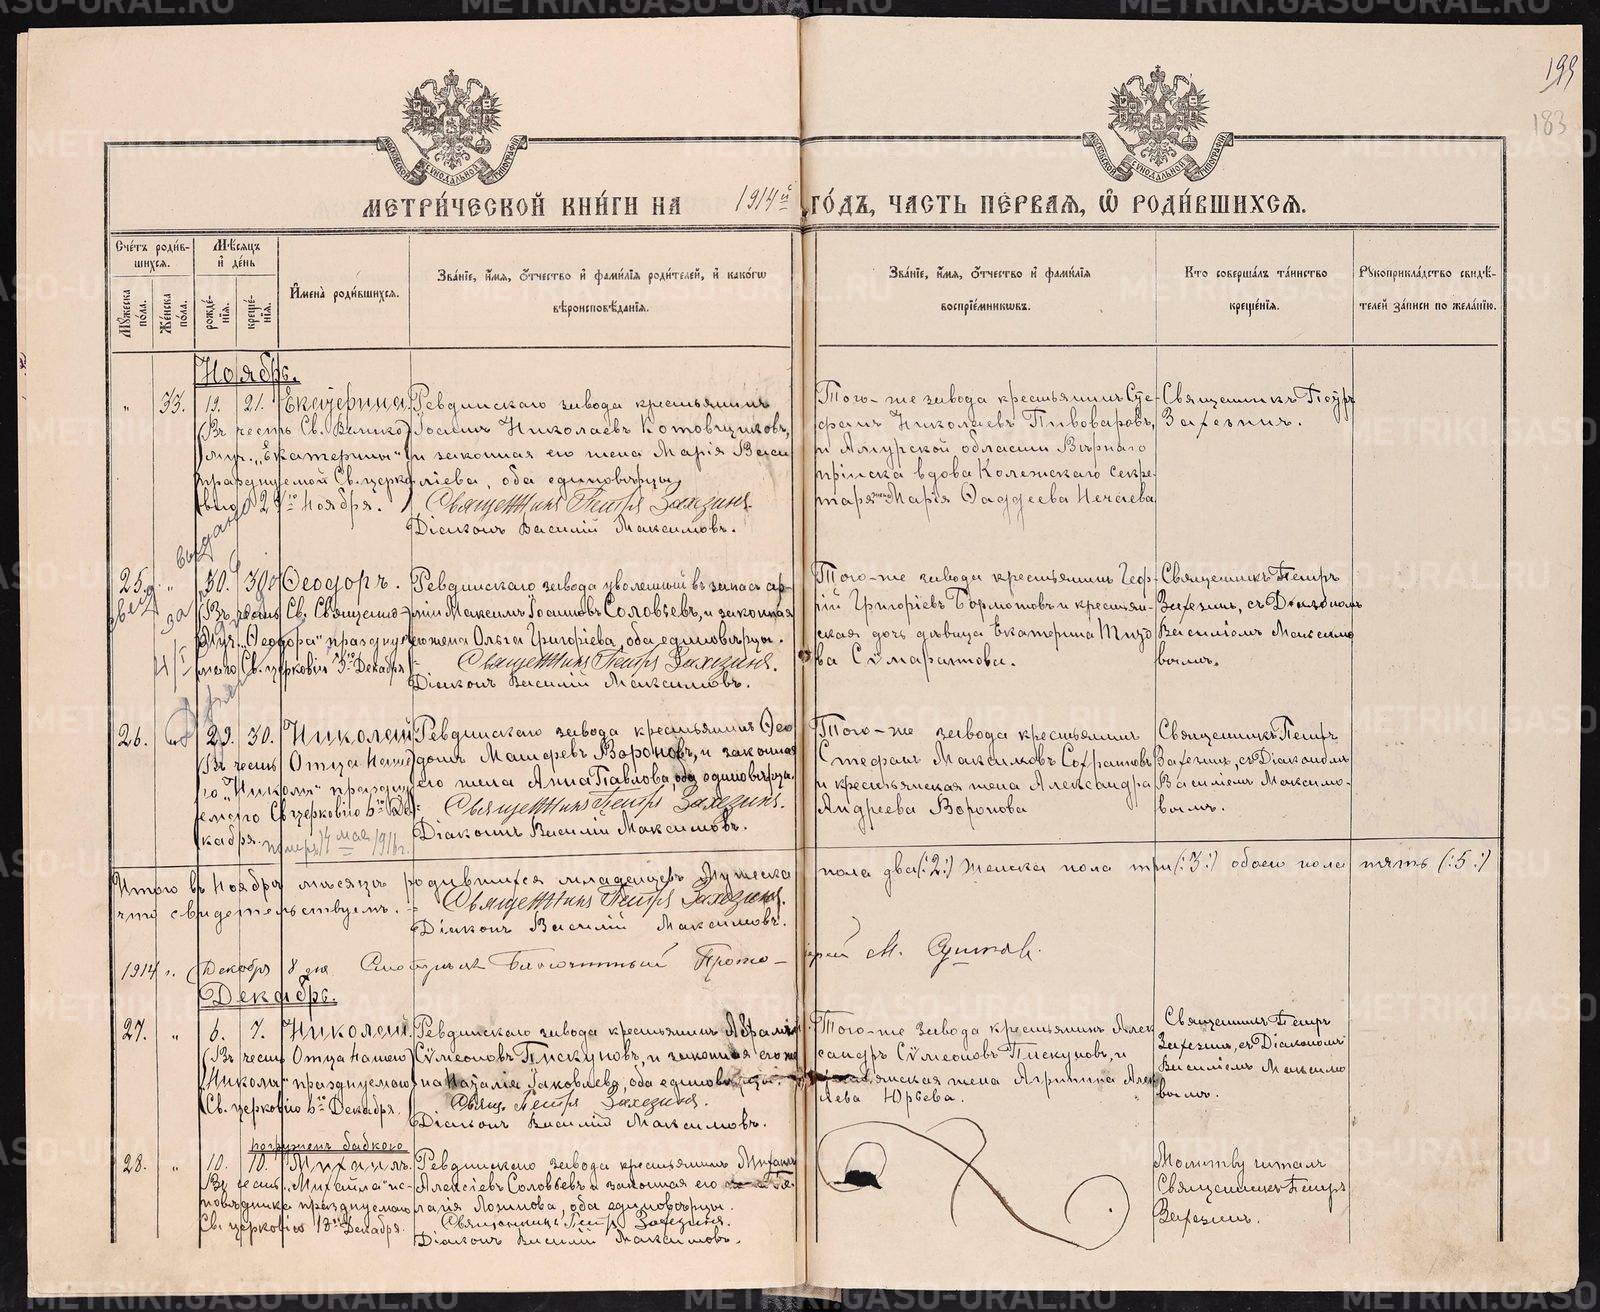 199
183
МЕТРИ́ЧЕСКОЙ КНИ́ГИ НА 1914й ГО́ДЪ, ЧАСТЬ ПЕ́РВАѦ, Ѽ РОДИ́ВШИХСѦ.
Сче́тъ роди́вшихся.
Мꙋ́жеска по́ла.
Же́нска по́ла.
Мѣ́сяцъ и҆ де́нь
рожде́нїя.
креще́нїя.
И҆мена̀ роди́вшихся.
Зва́нїе, и҆́мя, ѻ҆́тчество и҆ фами́лїя роди́телей, и҆ како́гѡ
вѣроисповѣ́данїя.
Зва́нїе, и҆́мя, ѻ҆́тчество и҆ фами́лїя
воспрїе́мникѡвъ.
Кто соверша́лъ та́инство
креще́нїя.
Рꙋкоприкла́дство свидѣ́-
телей за́писи по жела́нїю.
Ноябрь.
" 33. 19. 21. Екатерина
(Въ честь Св. Велико-
муч. „Екатерины"
празднуемой Св. церко-
вію 24го Ноября.)
Ревдинскаго завода крестьянинъ
Іоаннъ Николаевъ Котовщиковъ,
и законная его жена Марія Васи
ліева, оба единовѣрцы.
Священникъ Петръ Захезинъ.
Діаконъ Василій Максимовъ.
Того-же завода крестьянинъ Сте-
фанъ Николаевъ Пивоваровъ,
и Амурской области Вѣрнаго
пріиска вдова Колежскаго секре-
таря Марія Фаддеева Нечаева
Священникъ Петръ
Захезинъ.
25. " 30. 30. Ѳеодоръ.
(Въ честь Св. Священно-
муч. „Ѳеодора" праздну-
емаго Св. церковію 3го Декабря
Ревдинскаго завода уволенный въ запасъ ар-
міи Максимъ Іоанновъ Соловьевъ, и законная
его жена Ольга Григоріева, оба единовѣрцы.
Священникъ Петръ Захезинъ.
Діаконъ Василій Максимовъ.
Того-же завода крестьянинъ Геор-
гій Григоріевъ Бормотовъ и крестьян-
ская дочь дѣвица Екатерина
Священникъ Петръ
Захезинъ, съ Діакономъ
Василіемъ Максимо
вымъ.
26. " 29. 30. Николай
(Въ честь Отца Наше-
го „Николы" праздну-
емаго Св. церковію 6го Де-
кабря. померъ 14 мая 1916г.
Ревдинскаго завода крестьянинъ Ѳео
дотъ Матѳеевъ Вороновъ, и законная
его жена Анна Павлова, оба единовѣрцы.
Священникъ Петръ Захезинъ.
Діаконъ Василій Максимовъ.
Того-же завода крестьянинъ
Стефанъ Максимовъ Софроновъ
и крестьянская жена Александра
Андреева Воронова
Священникъ Петръ
Захезинъ, съ Діакономъ
Василіемъ Максимо-
вымъ.
Итого въ Ноябрѣ мѣсяцѣ родившихся младенцевъ Мужеска пола два (:2:) Женска пола три (:3:) обоего пола пять (:5:)
что свидетельствуемъ. Священникъ Петръ Захезинъ.
Діаконъ Василій Максимовъ.
1914 г. Декабря 8 дня Смотрѣлъ Благочинный Прото-іерей М.
Декабрь.
27. " 6. 7. Николай
(Въ честь Отца Нашего
„Николы" празднуемаго
Св. церковію 6го Декабря.
Ревдинскаго завода крестьянинъ Авраамій
Сѵмеоновъ Пискуновъ, и законная его же
на Наталія Іаковлева, оба единовѣрцы.
Свящ. Петръ Захезинъ.
Діаконъ Василій Максимовъ.
Того-же завода крестьянинъ Алек
сандръ Сѵмеоновъ Пискуновъ, и
крестьянская жена Агрипина Алек
Юрьева.
Священникъ Петръ
Захезинъ, съ Діакономъ
Василіемъ Максимо
вымъ.
погруженъ бабкою
28. " 10. 10. Михаилъ.
Въ честь „Михаила" ис-
повѣдника празднуемаго
Св. церковію Декабря.
Ревдинскаго завода крестьянинъ Михаилъ
Алексіевъ Соловьевъ и законная его
Логинова, оба единовѣрцы.
Священникъ Петръ Захезинъ.
Діаконъ Василій Максимовъ.
Молитву читалъ
Священникъ Петръ
Захезинъ.
METRIKI.GASO-URAL.RU